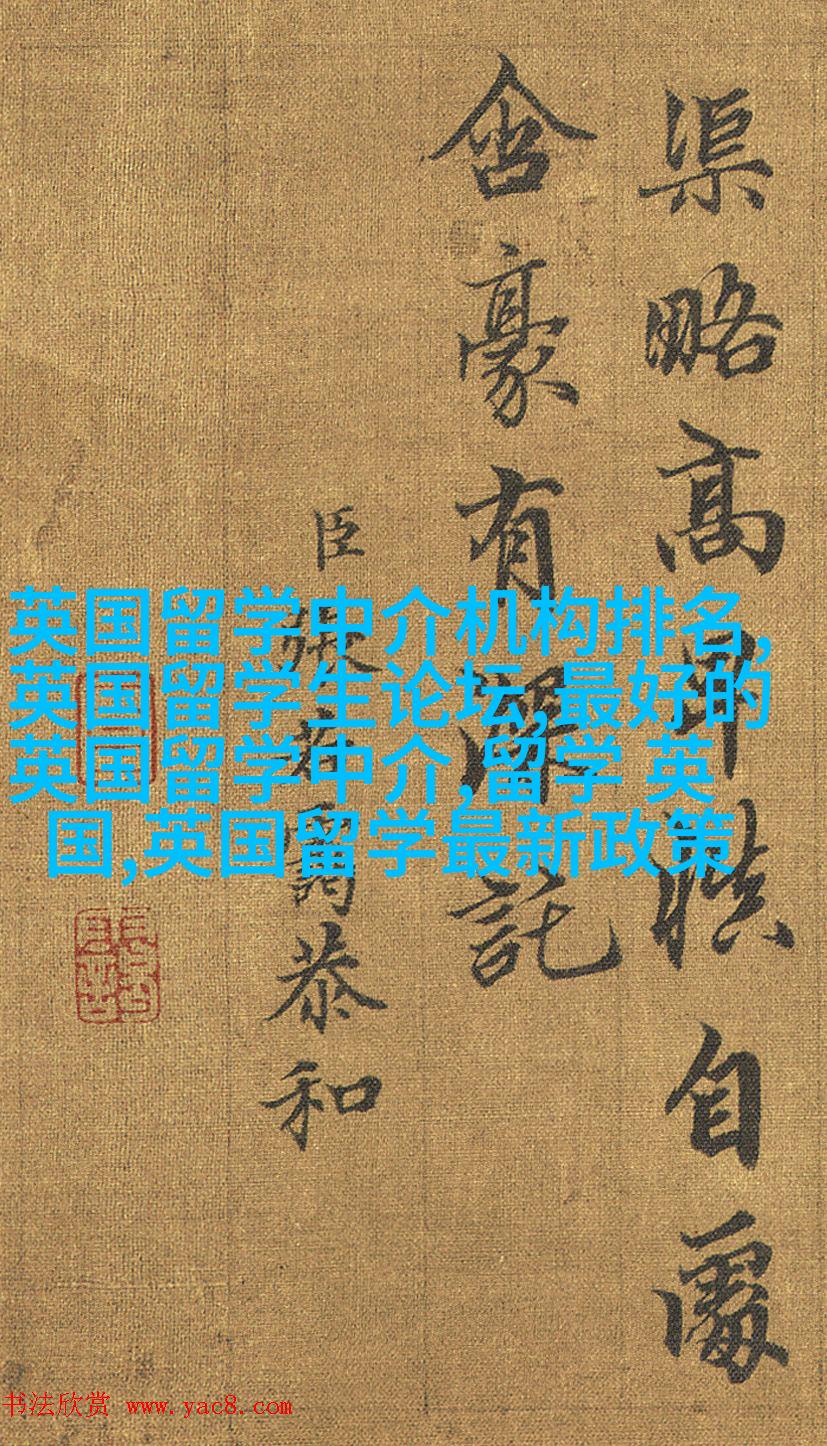 渠略高自
含豪有深託
臣張若靄恭和
英国留学中介机构排名,
英国留学生论坛,最好的
英国留学中介,留学 英
国,英国留学最新政策
书法欣赏 www.yac8.com